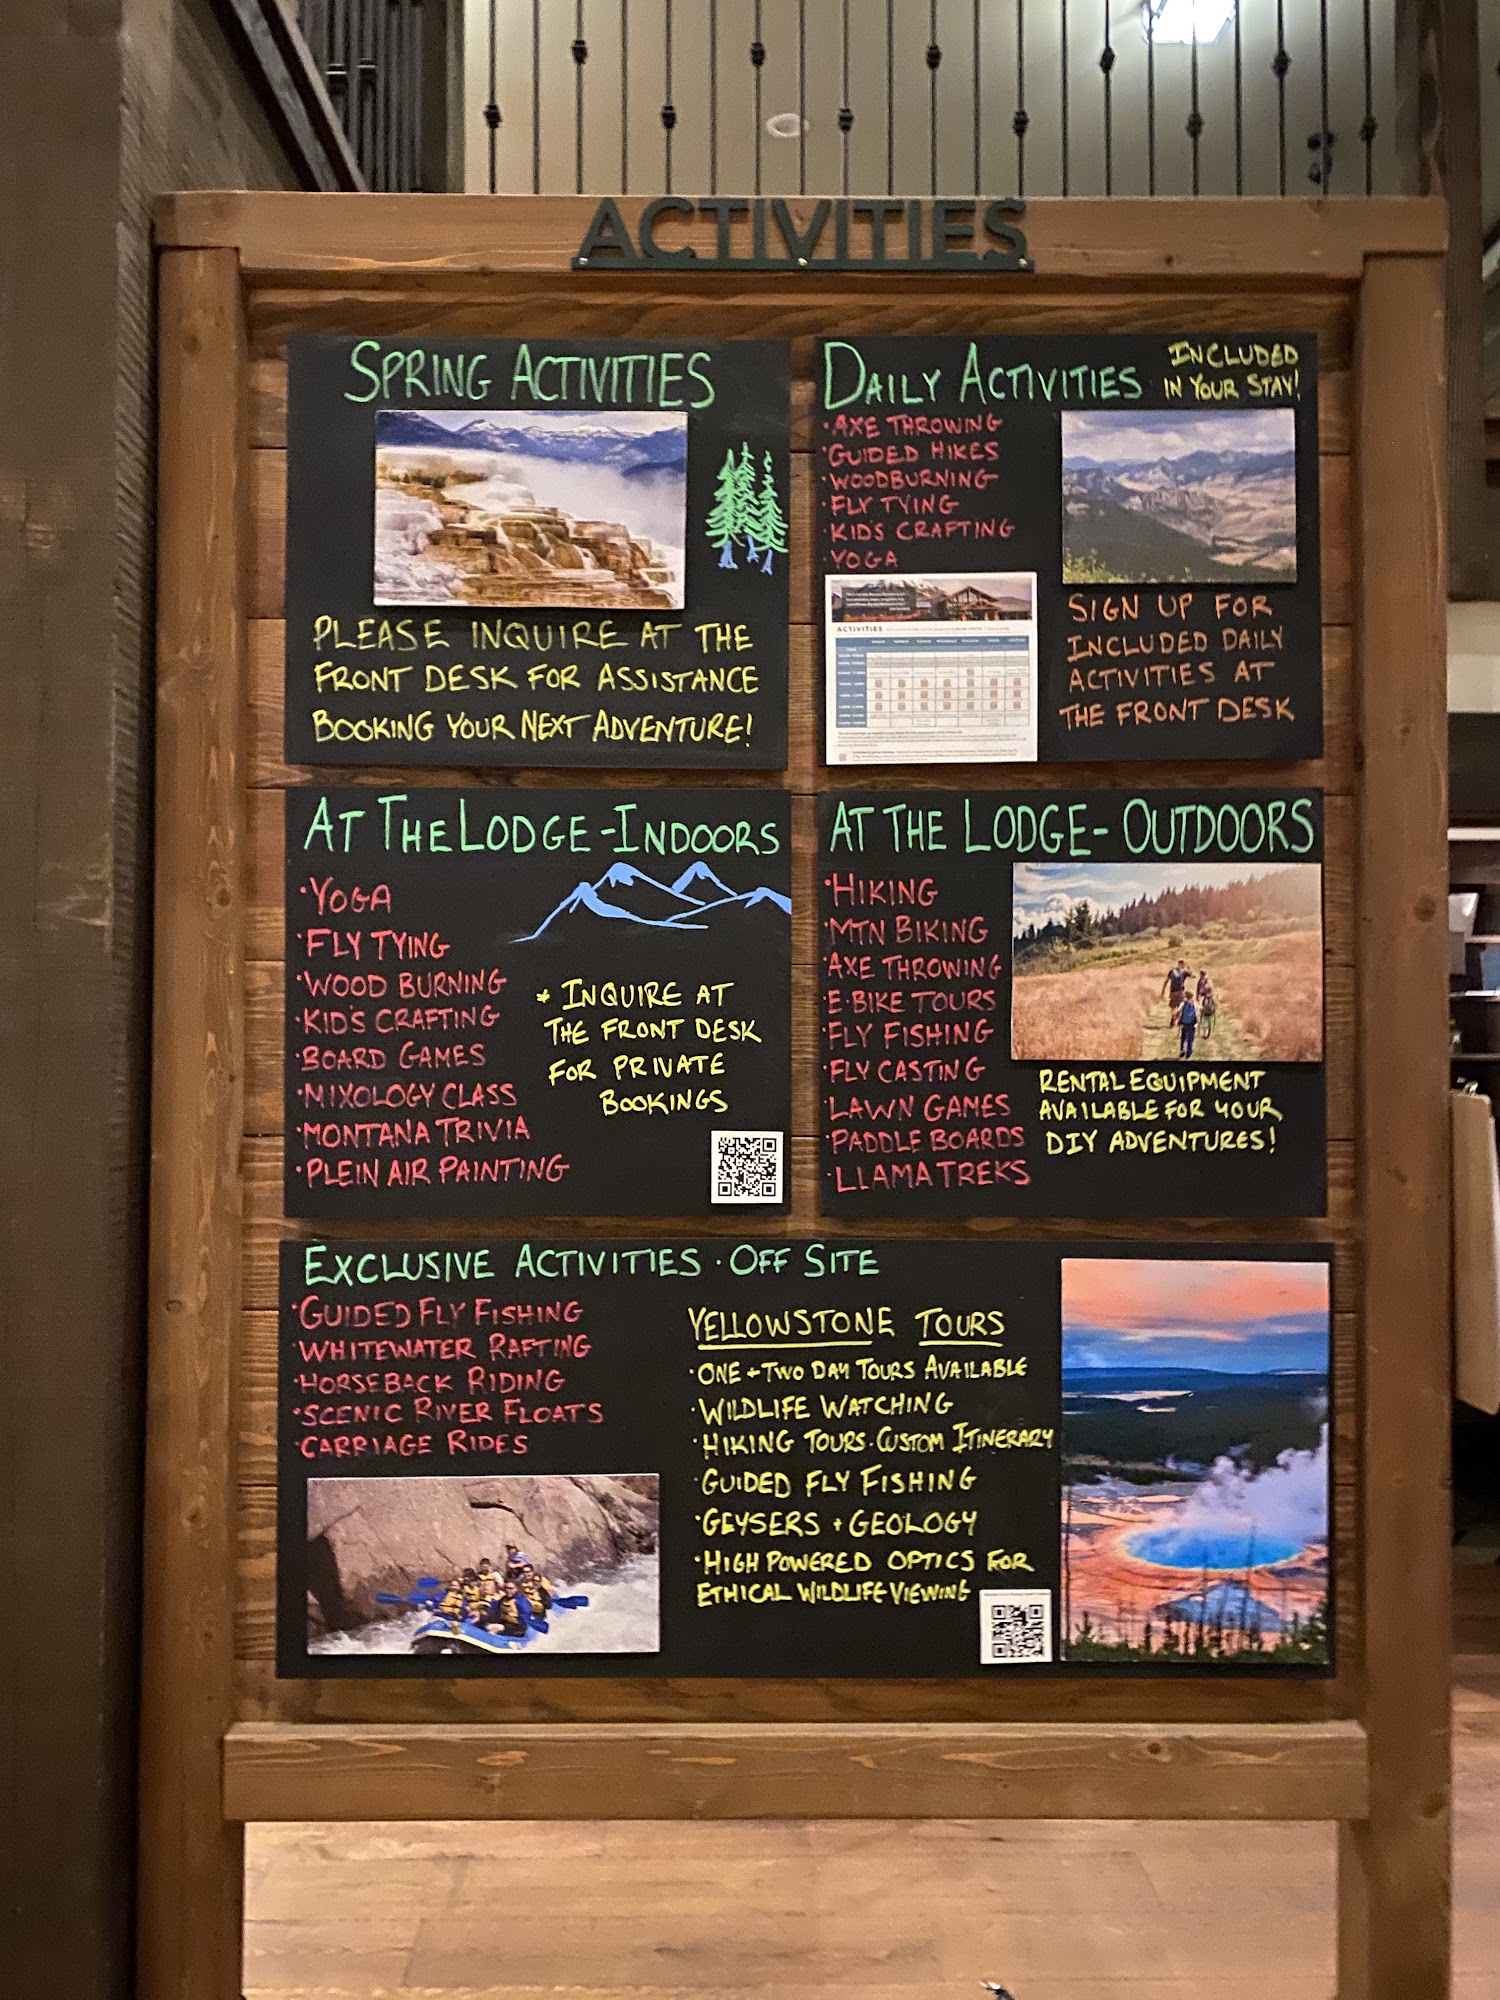 ACTIVITIES
SPRING ACTIVITIES
PLEASE INQUIRE AT THE
FRONT DESK FOR ASSISTANCE
BOOKING YOUR NEXT ADVENTURE!
DAILY ACTIVITIES
INCLUDED
IN YOUR STAY!
·AXE THROWING
·GUIDED HIKES
·WOODBURNING
·FLY TYING
·KID'S CRAFTING
·YOGA
ACTIVITIES
SIGN UP FOR
INCLUDED DAILY
ACTIVITIES AT
THE FRONT DESK
AT THE LODGE-INDOORS
·YOGA
·FLY TYING
·WOOD BURNING
·KID'S CRAFTING
·BOARD GAMES
·MIXOLOGY CLASS
·MONTANA TRIVIA
·PLEIN AIR PAINTING
* INQUIRE AT
THE FRONT DESK
FOR PRIVATE
BOOKINGS
AT THE LODGE- OUTDOORS
·HIKING
·MTN BIKING
·AXE THROWING
·E-BIKE TOURS
·FLY FISHING
·FLY CASTING
·LAWN GAMES
·PADDLE BOARDS
·LLAMA TREKS
RENTAL EQUIPMENT
AVAILABLE FOR YOUR
DIY ADVENTURES!
EXCLUSIVE ACTIVITIES · OFF SITE
·GUIDED FLY FISHING
·WHITEWATER RAFTING
·HORSEBACK RIDING
·SCENIC RIVER FLOATS
·CARRIAGE RIDES
YELLOWSTONE TOURS
·ONE + TWO DAY TOURS AVAILABLE
·WILDLIFE WATCHING
·HIKING TOURS·CUSTOM ITINERARY
·GUIDED FLY FISHING
·GEYSERS + GEOLOGY
·HIGH POWERED OPTICS FOR
ETHICAL WILDLIFE VIEWING